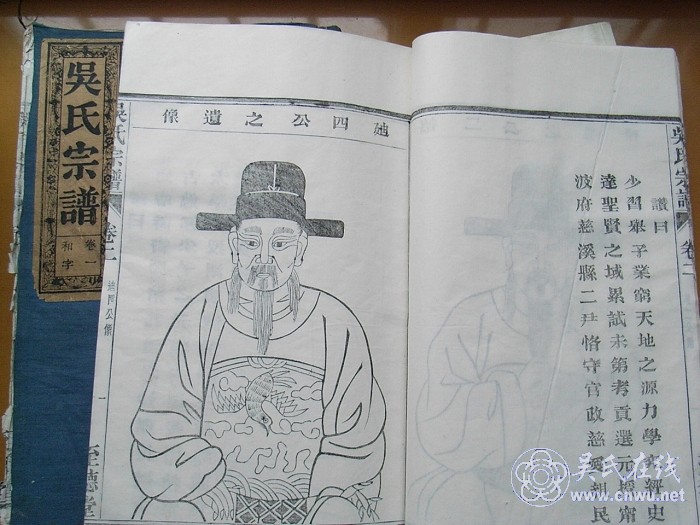 吳氏宗譜
卷一
和字
吳氏宗譜
卷二
讚曰
少習舉子業窮天地之源力學經史
達聖賢之域累試未第考貢選元授甯
波府慈溪縣二尹恪守官政慈利民
廸四公之遺像
吳氏宗譜
卷二
廸四公像
一
至德堂
吳氏在线
www.cnwu.net